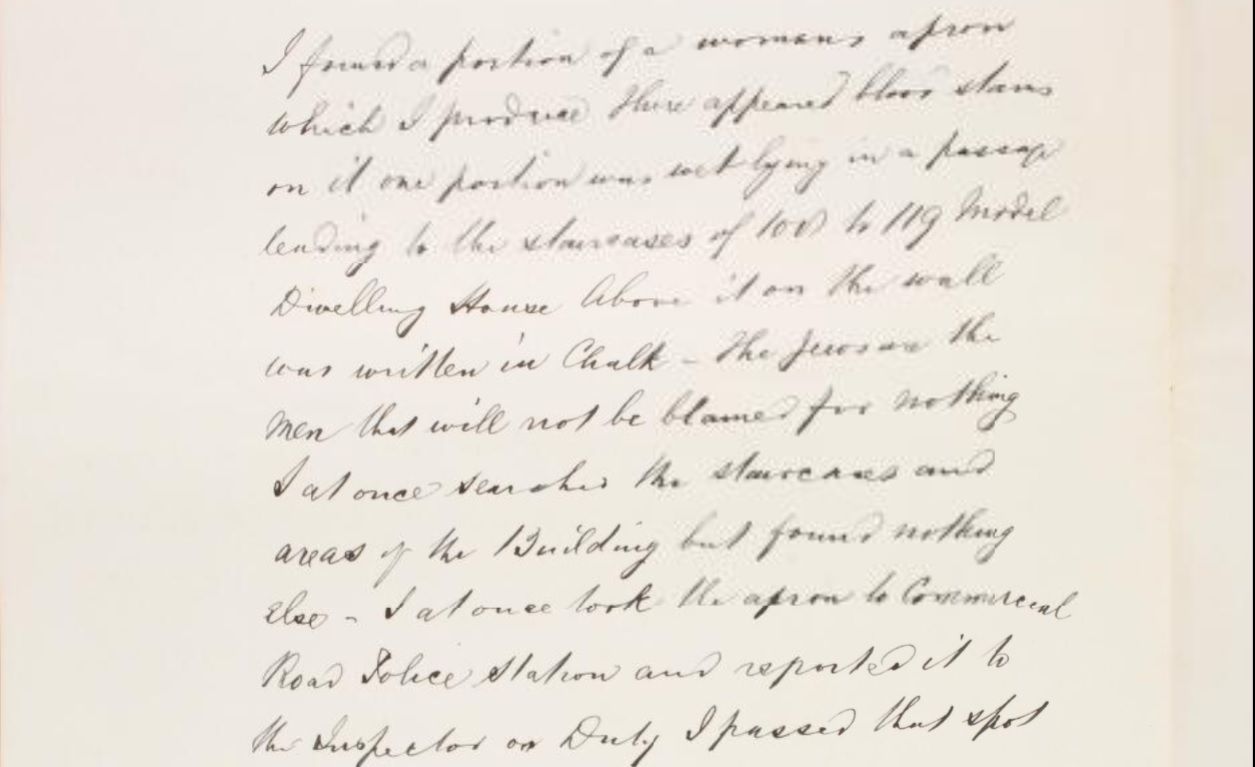 I found a portion of a womans apron
which I produce There appeared blood stains
on it one portion was wet lying in a passage
leading to the staircases of 108 to 119 Model
Dwelling House Above it on the wall
was written in Chalk - The Jews are the
men that will not be blamed for nothing
I at once searched the staircases and
areas of the Building but found nothing
else - I at once took the apron to Commercial
Road Police Station and reported it to
the Inspector on Duty I passed that spot